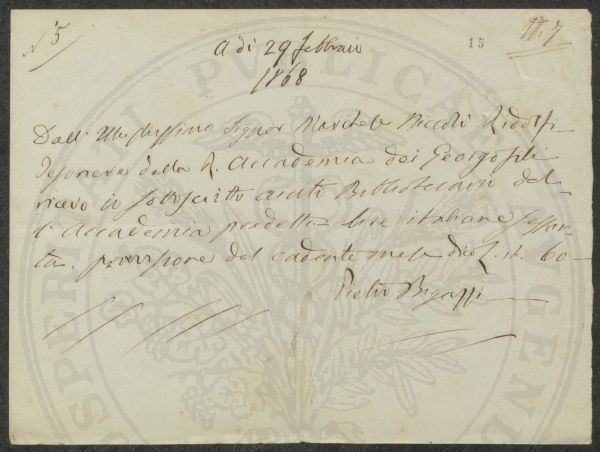 N 5
A di 29 febbraio
1868
15
Dall' Illustrissimo Signor Marchese Niccolò Ridolfi
Tesoriere della R. Accademia dei Georgofili
ricevo io sottoscritto aiuto Bibliotecario del-
l'Accademia predetta lire italiane sessan-
ta. provvisione del cadente mese dico L. it. 60-
Pietro Bigazzi
PROSPERITATI PUBLICAE AUGENDAE